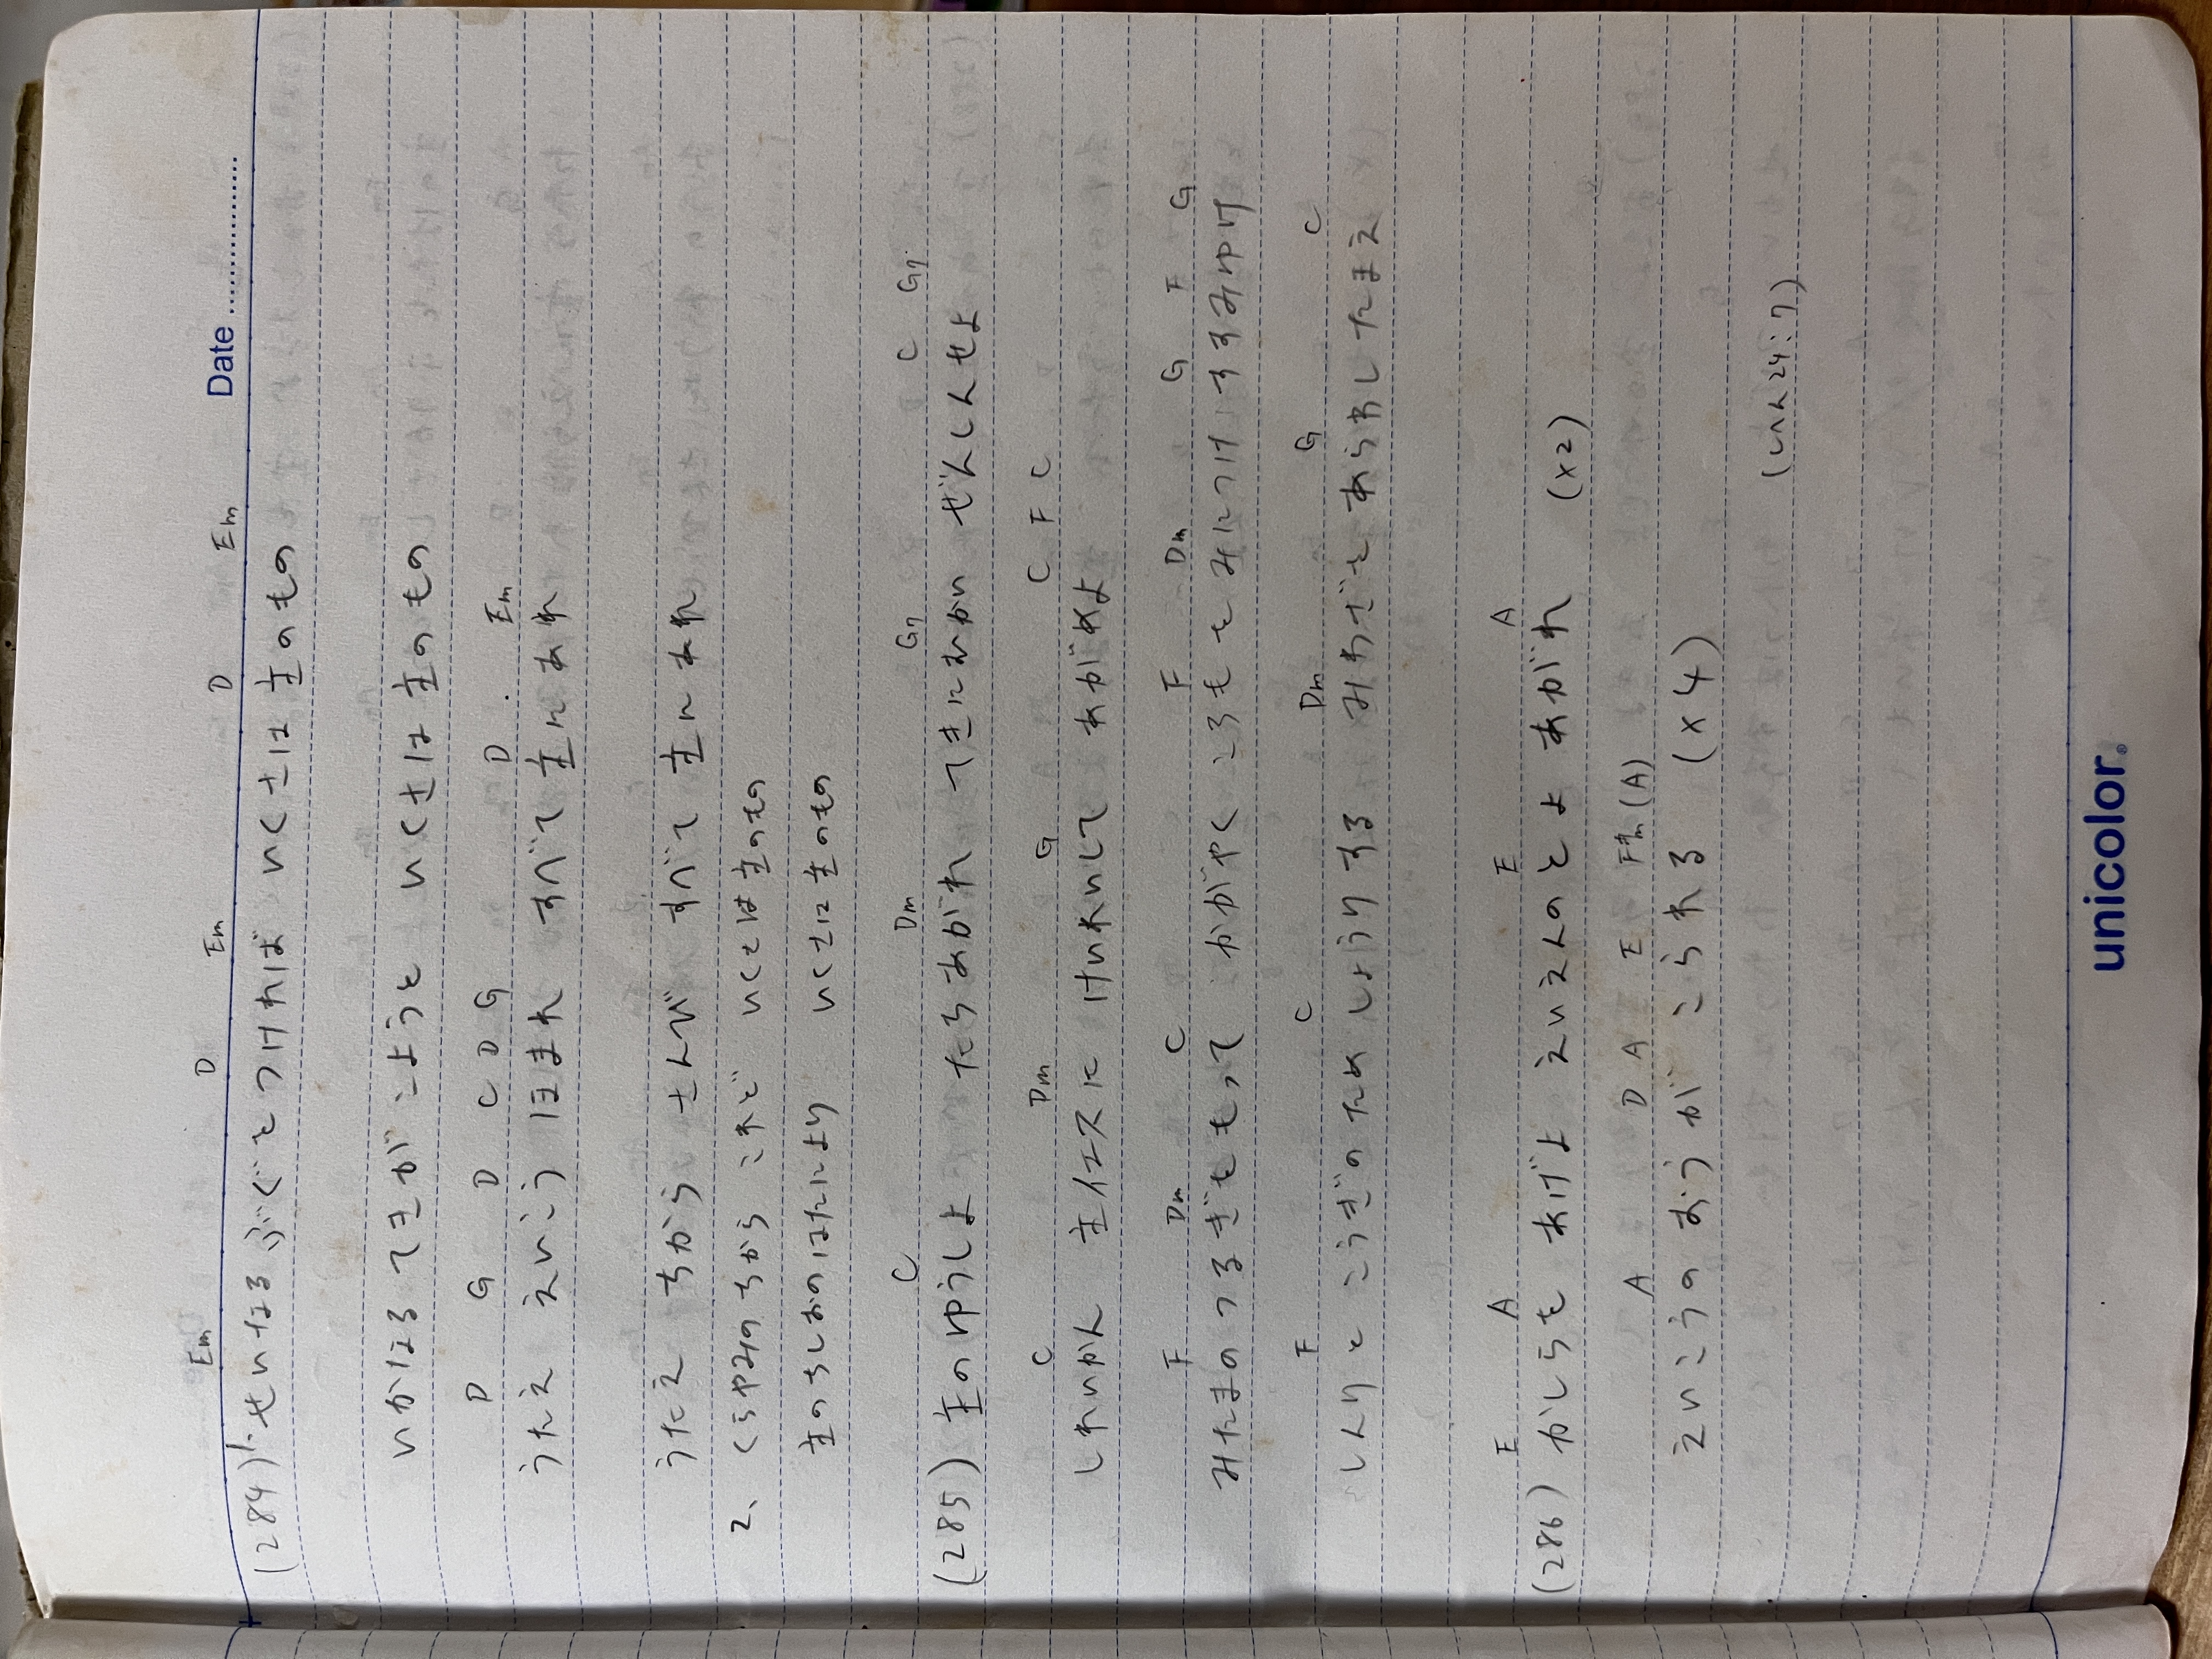 Date
Em D Em D Em
(284) 1. せいなる ぶぐを つければ いくさは 主のもの
いかなる てきが こようと いくさは 主のもの
D G D C D G D Em
うたえ えいこう ほまれ すべて 主にあれ
うたえ ちから さんび すべて 主にあれ
2、くらやみのちから こずと いくさは主のもの
主のちしおのはたにより いくさは主のもの
C Dm G7 C G7
(285) 主のゆうしよ たちあがれ てきにむかい ぜんしんせよ
C Dm G C F C
しれいかん 主イエスに けいれいして あがめよ
F Dm C F Dm G F G
みたまの つるぎをもって かがやく ころもを みにつけ すすみゆけ
F C Dm G C
しんりと こうぎのため しょうりする みわざを あらわしたまえ
E A E A
(286) かしらを あげよ えいえんのとよ あがれ (x2)
A D A E F#m (A)
えいこうの おうが こられる (x4)
(しへん24:7)
unicolor®